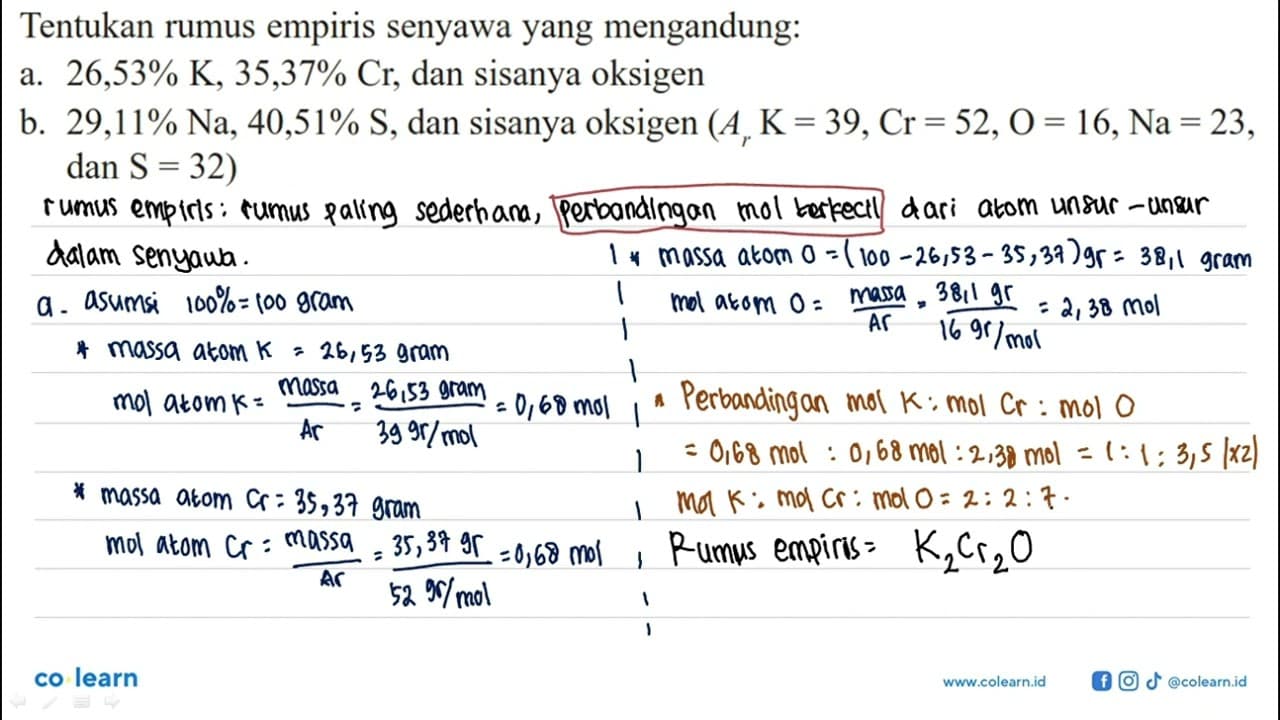 Tentukan rumus empiris senyawa yang mengandung:
a. 26,53% K, 35,37% Cr, dan sisanya oksigen
b. 29,11% Na, 40,51% S, dan sisanya oksigen (A_r K = 39, Cr = 52, O = 16, Na = 23,
dan S = 32)
rumus empiris : rumus paling sederhana, perbandingan mol terkecil dari atom unsur-unsur
dalam senyawa.
a. asumsi 100% = 100 gram
* massa atom K = 26,53 gram
mol atom K = massa/Ar = 26,53 gram/39 gr/mol = 0,68 mol
* massa atom Cr = 35,37 gram
mol atom Cr = massa/Ar = 35,37 gr/52 gr/mol = 0,68 mol
* massa atom O = (100 - 26,53 - 35,37) gr = 38,1 gram
mol atom O = massa/Ar = 38,1 gr/16 gr/mol = 2,38 mol
* Perbandingan mol K : mol Cr : mol O
= 0,68 mol : 0,68 mol : 2,38 mol = 1 : 1 : 3,5 |x2|
mol K : mol Cr : mol O = 2 : 2 : 7.
Rumus empiris = K₂Cr₂O
co learn
www.colearn.id
@colearn.id